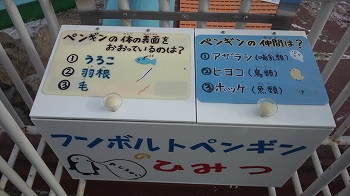 ペンギンの体の表面を
おおっているのは？
① うろこ
② 羽根
③ 毛
ペンギンの仲間は？
① アザラシ(哺乳類)
② ヒヨコ (鳥類)
③ ホッケ (魚類)
フンボルトペンギン
のひみつ